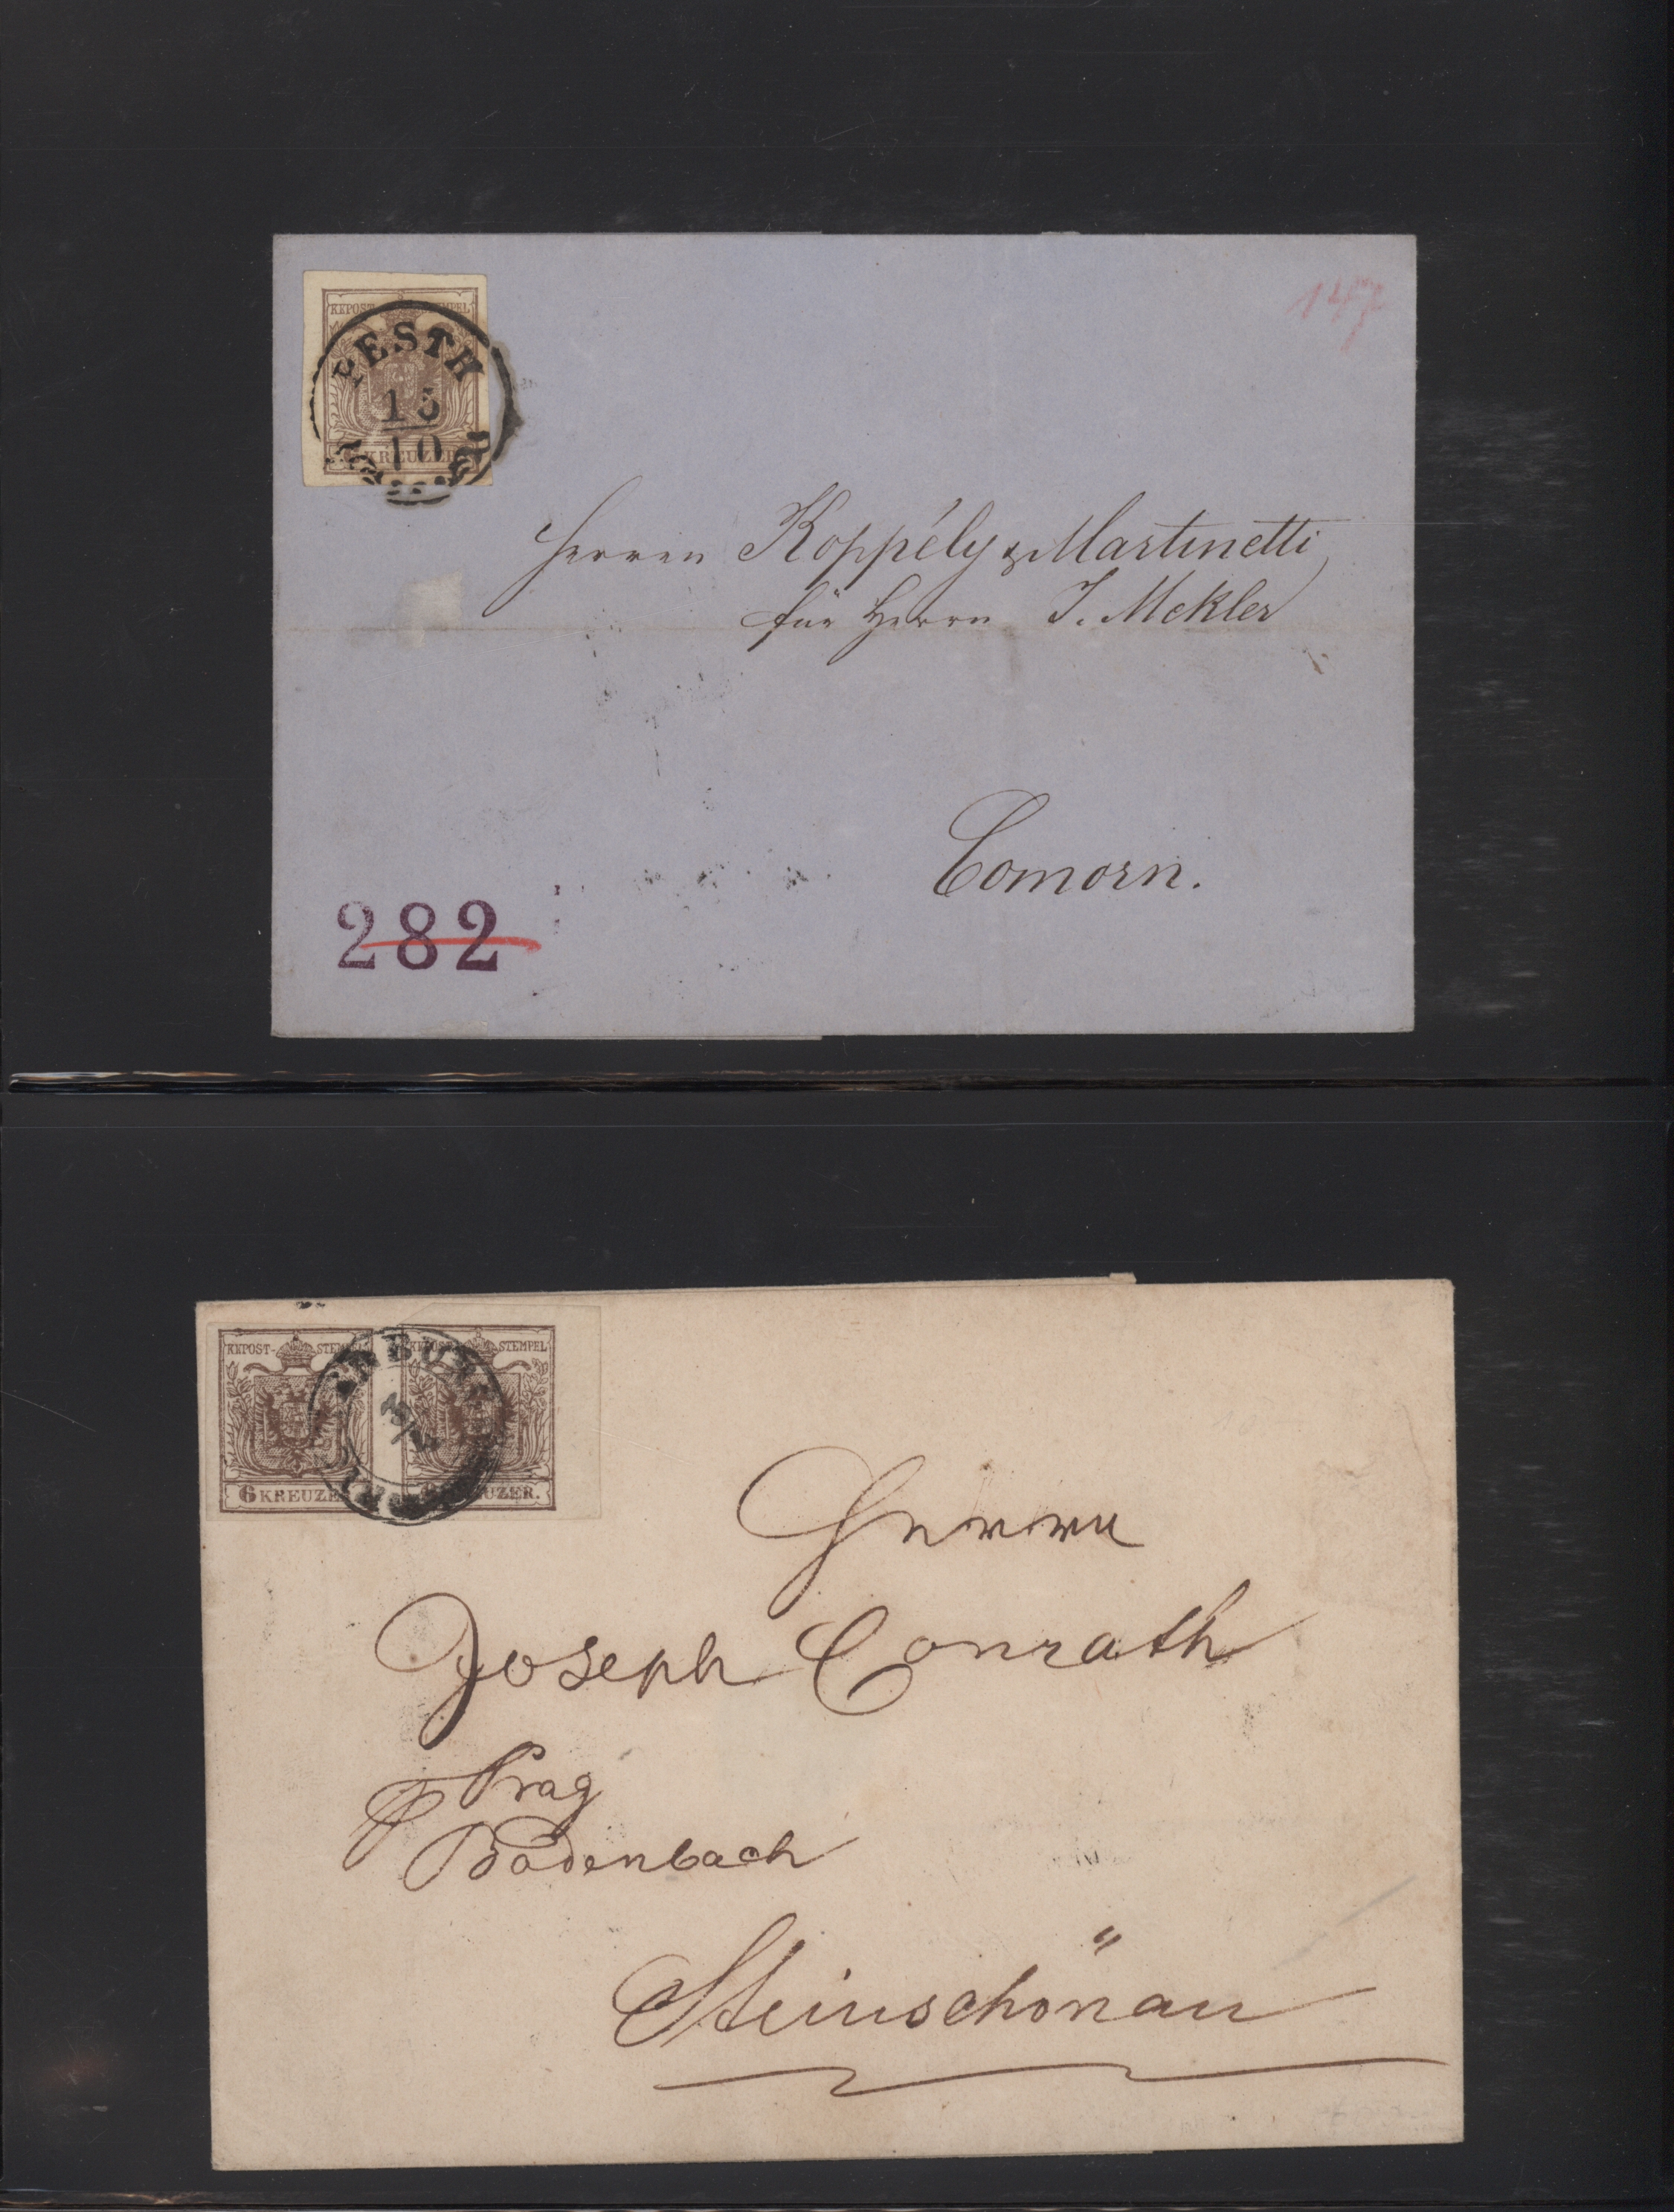 KKPOST-STEMPEL
PESTH
15
10
KREUZER
147
Herren Koppély & Martinetti
für Herrn J. Mekler
Comorn.
282
KKPOST- STEMPEL
KKPOST- STEMPEL
6 KREUZE
UZER.
Herrn
Joseph Conrath
Prag
Bodenbach
Steinschönau